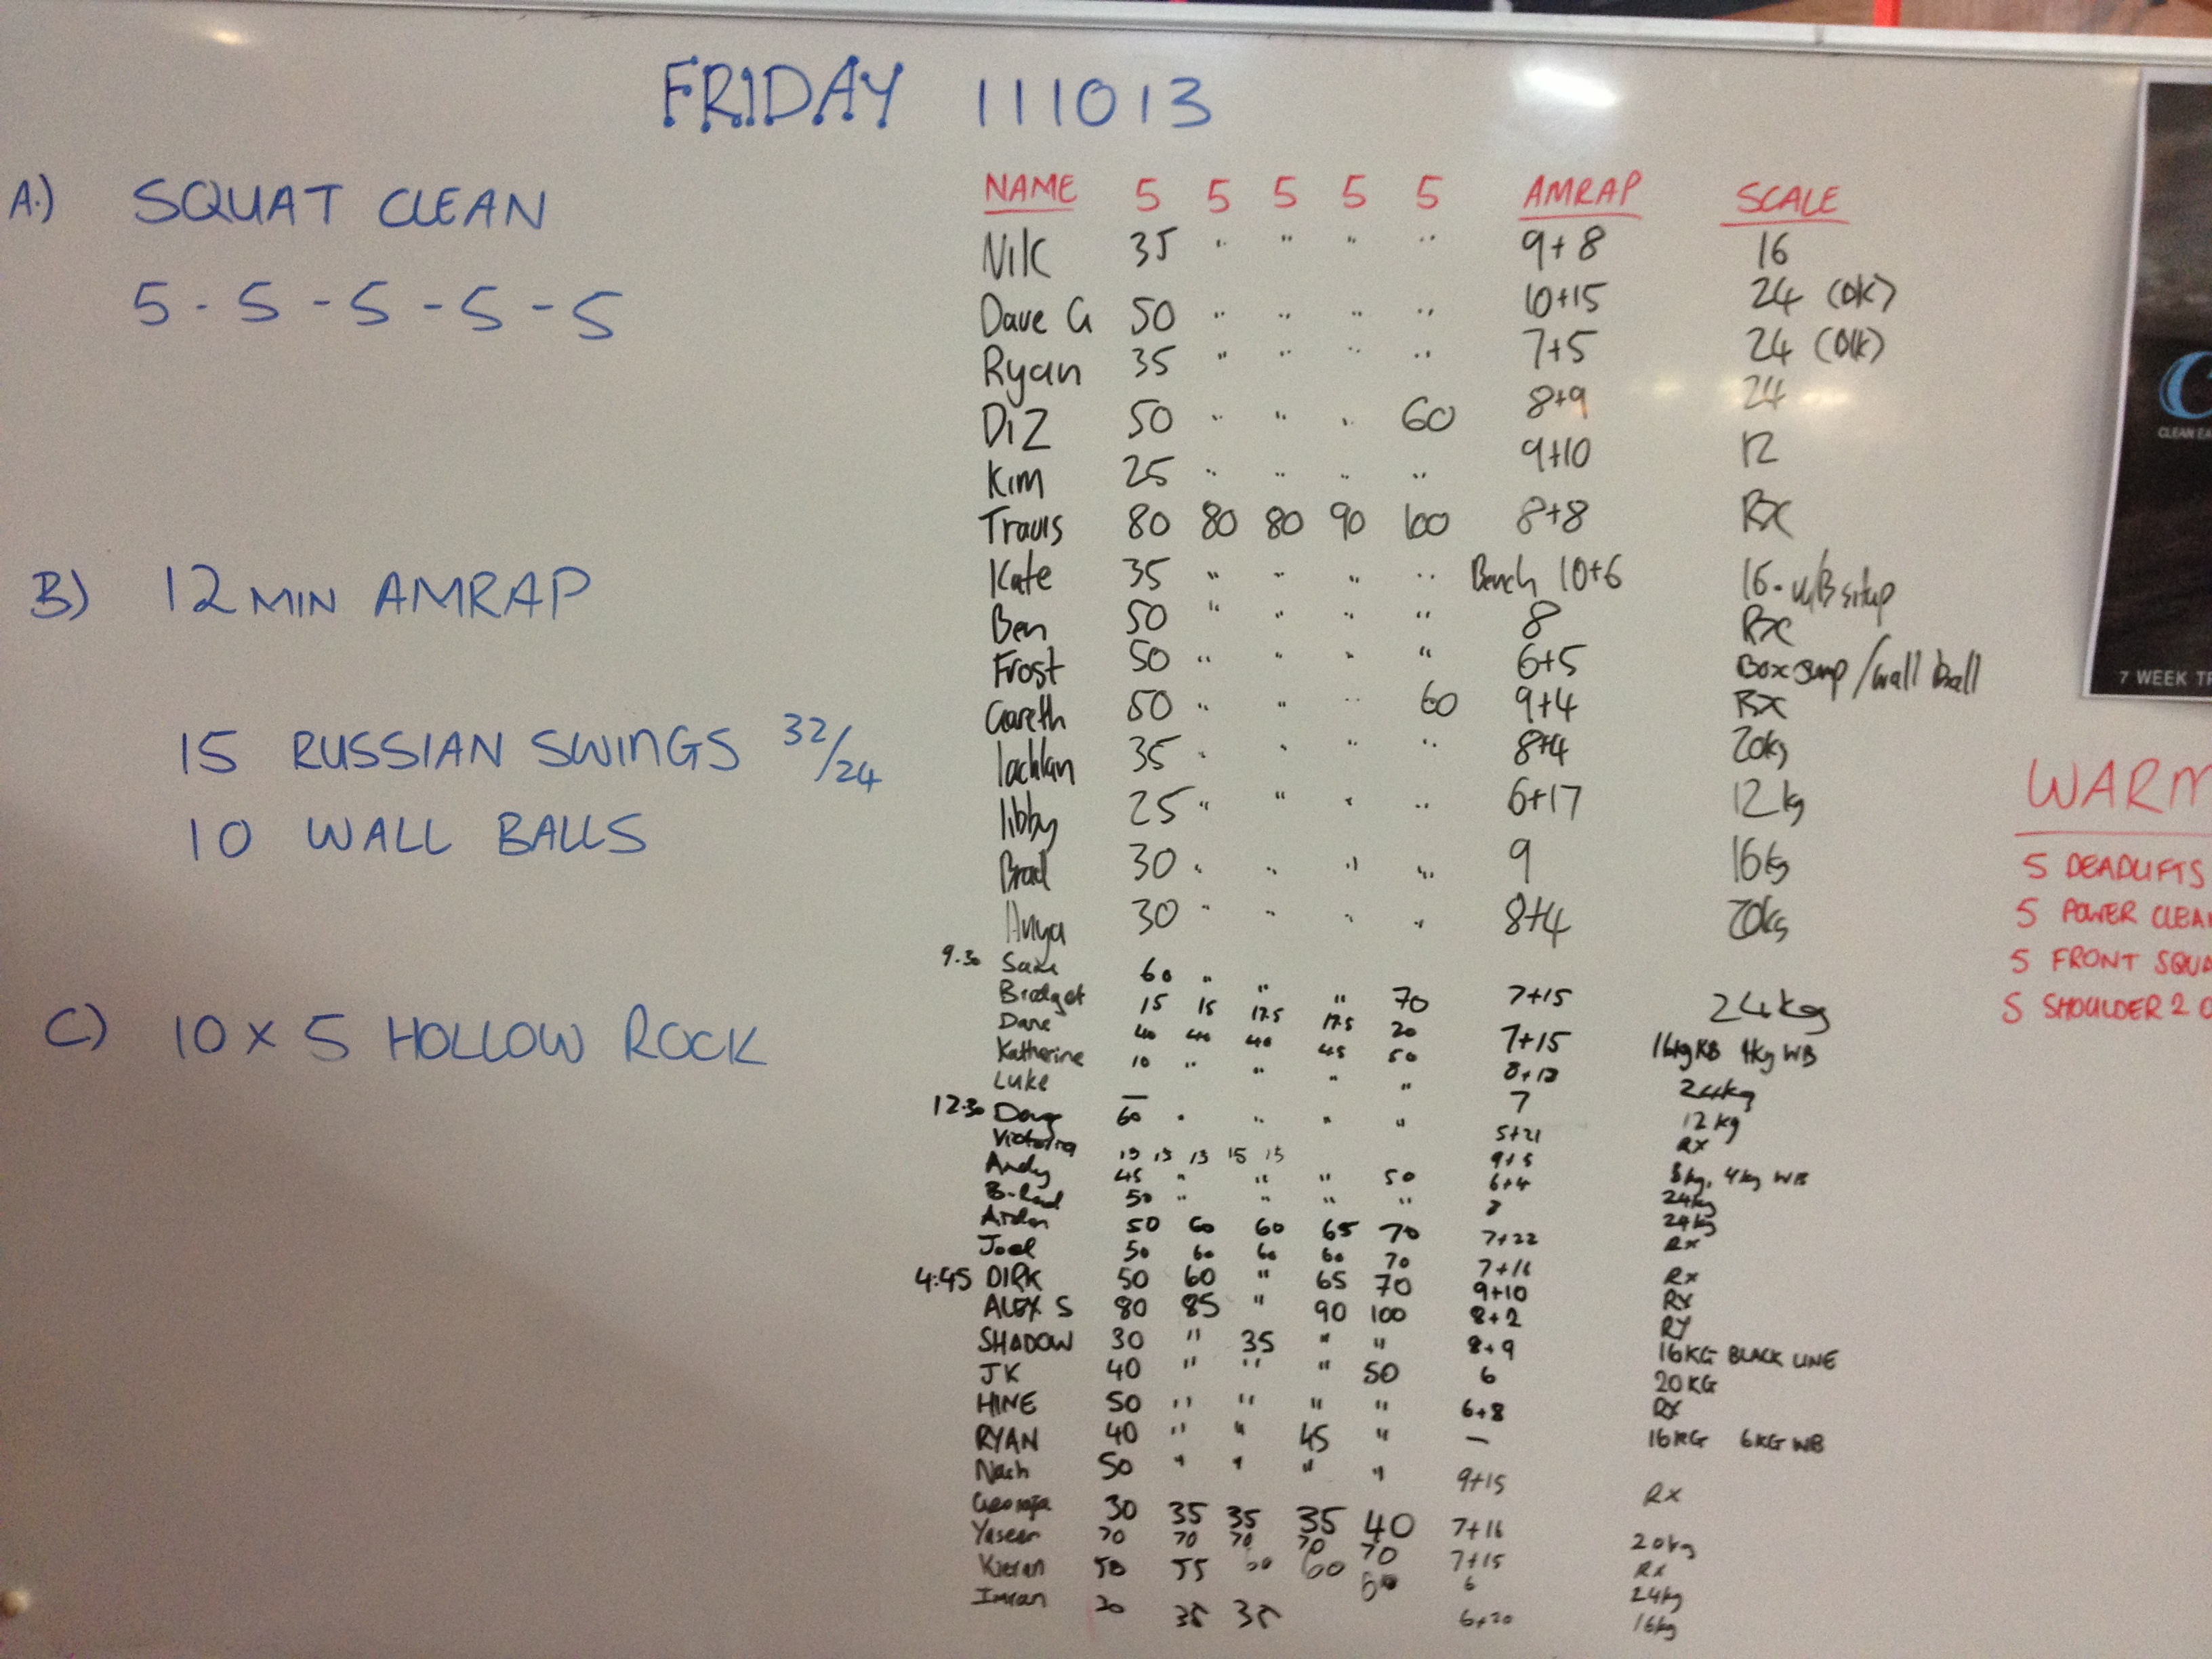 FRIDAY 111013
A.) SQUAT CLEAN
5 - 5 - 5 - 5 - 5
B) 12 MIN AMRAP
15 RUSSIAN SWINGS 32/24
10 WALL BALLS
C) 10 x 5 HOLLOW ROCK
NAME 5 5 5 5 5 AMRAP SCALE
Nik 35 " " " " 9+8 16
Dave G 50 " " " " 10+15 24 (OK)
Ryan 35 " " " " 7+5 24 (OK)
DiZ 50 " " " 60 8+9 24
Kim 25 " " " " 9+10 12
Travis 80 80 80 90 100 8+8 Rx
Kate 35 " " " " Bench 10+6 16 - W/B situp
Ben 50 " " " " 8 Rx
Frost 50 " " " " 6+5 Box Jump / wall ball
Gareth 50 " " " 60 9+4 Rx
lachlan 35 " " " " 8+4 20kg
libby 25 " " " " 6+17 12kg
Brad 30 " " " " 9 16kg
Anya 30 " " " " 8+4 20kg
9.30 60 " " " 70 7+15 24kg
Bridget 15 15 17.5 17.5 20 7+15 16kg KB 4kg WB
Dane 40 40 40 45 50 24kg
Katherine 10 " " " " 7 12kg
Luke — 5+21 Rx
12.30 Doug 60 " " " " 9+5
Victoria 15 15 15 15 15 6+4 8kg, 4kg WB
Andy 45 " " " 50 24kg
B-Rad 50 " " " " 24kg
50 60 60 65 70 7+22 Rx
Joel 50 60 60 60 70 7+16 Rx
4:45 DIRK 50 60 " 65 70 9+10 RX
ALEX S 80 85 " 90 100 8+2 RX
SHADOW 30 " 35 " " 8+9 16KG BLACK LINE
JK 40 " " " 50 6 20KG
HINE 50 " " " " 6+8 RX
RYAN 40 " " 45 " — 16KG 6KG WB
Nach 50 " " " " 9+15 RX
Georgia 30 35 35 35 40 7+16 20kg
Yaseen 70 70 70 70 70 7+15 Rx
Kieran 50 55 60 60 6 24kg
Imran 30 35 35 6+20 16kg
CLEAN EA
7 WEEK TR
WARM
5 DEADLIFTS
5 POWER CLEA
5 FRONT SQUA
5 SHOULDER 2 O